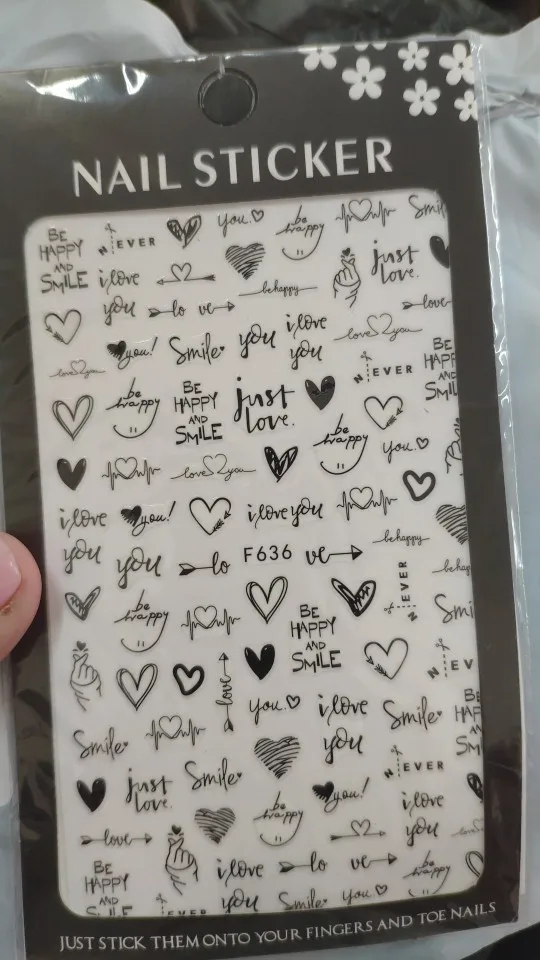 NAIL STICKER
BE
HAPPY
AND
SMILE
N EVER
you.
be
happy
Smile
i love
you
be happy
just
love.
lo ve
love
love you
you!
Smile
you
i love
you
love you
N EVER
BE
HAPPY
AND
SMIL
be
happy
BE
HAPPY
AND
SMILE
just
love.
be
happy
you.
love you
i love
you
you!
you
i love you
lo F636 ve
be happy
N EVER
be hap
be
happy
BE
HAPPY
AND
SMILE
Smi
N EV
love
you.
i love
you
Smile
BE
HAP
AND
SM
Smile
just
love.
Smile
N EVER
you!
be
happy
i love
you
love
BE
HAPPY
AND
i love
you
lo ve
be
happy
EVER
Smile
you
JUST STICK THEM ONTO YOUR FINGERS AND TOE NAILS